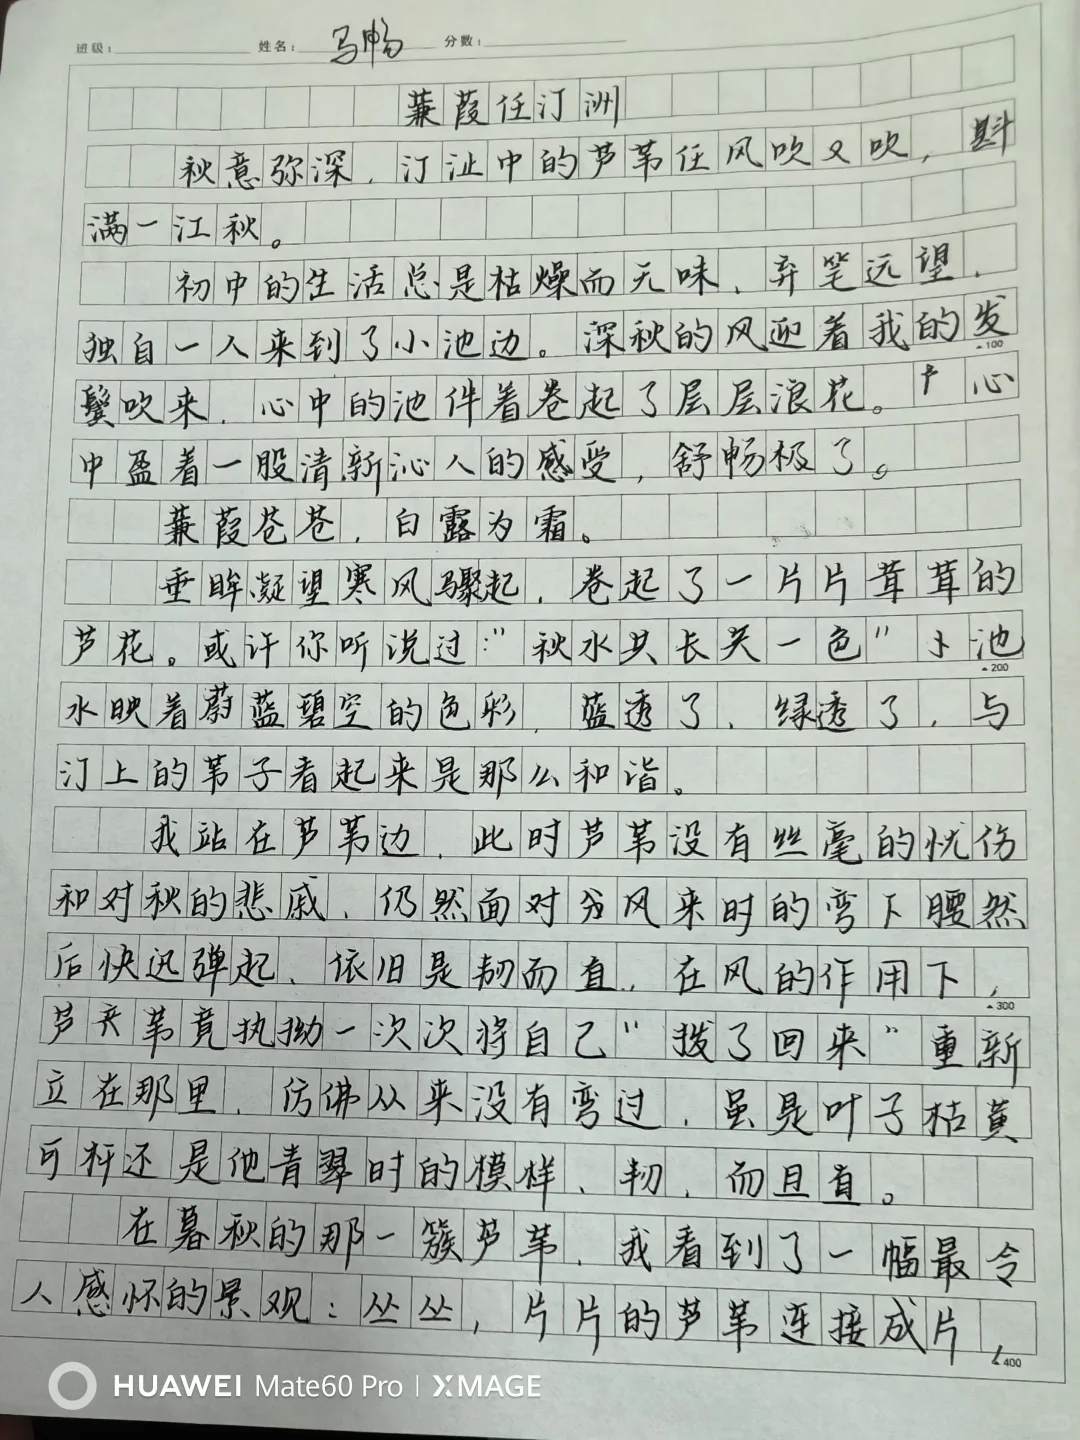 班级： 姓名： 马畅 分数：
蒹葭任汀洲
秋意弥深，汀沚中的芦苇任风吹又吹，斟
满一江秋。
初中的生活总是枯燥而无味，弃笔远望，
独自一人来到了小池边。深秋的风迎着我的发
▲100
鬓吹来，心中的池伴着卷起了层层浪花。心
中盈着一股清新沁人的感受，舒畅极了。
蒹葭苍苍，白露为霜。
垂眸凝望寒风骤起，卷起了一片片茸茸的
芦花。或许你听说过："秋水共长天一色"小池
▲200
水映着蔚蓝碧空的色彩，蓝透了，绿透了，与
汀上的苇子看起来是那么和谐。
我站在芦苇边，此时芦苇没有丝毫的忧伤
和对秋的悲戚，仍然面对风来时的弯下腰然
后快迅弹起，依旧是韧而直，在风的作用下，
▲300
芦苇竟执拗一次次将自己"拨了回来"重新
立在那里，仿佛从来没有弯过，虽是叶子枯黄
可秆还是他青翠时的模样，韧，而且直。
在暮秋的那一簇芦苇，我看到了一幅最令
人感怀的景观：丛丛，片片的芦苇连接成片，
▲400
HUAWEI Mate60 Pro | XMAGE